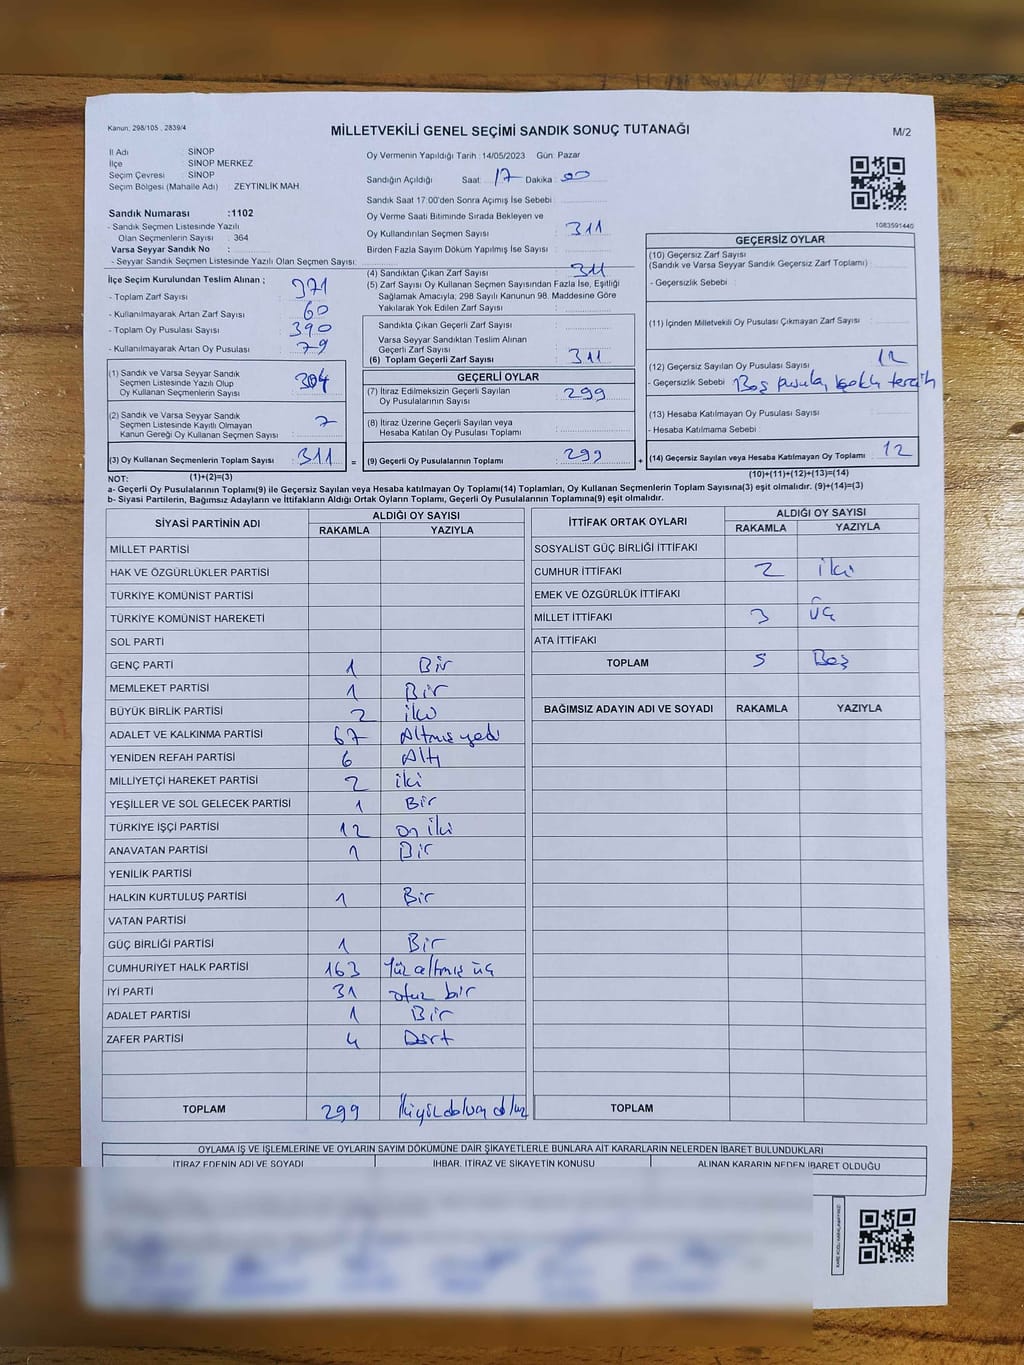 Kanun: 298/105 , 2839/4
MİLLETVEKİLİ GENEL SEÇİMİ SANDIK SONUÇ TUTANAĞI
M/2
İl Adı : SİNOP
İlçe : SİNOP MERKEZ
Seçim Çevresi : SİNOP
Seçim Bölgesi (Mahalle Adı) : ZEYTİNLİK MAH
Sandık Numarası :1102
- Sandık Seçmen Listesinde Yazılı
Olan Seçmenlerin Sayısı : 364
Varsa Seyyar Sandık No :
- Seyyar Sandık Seçmen Listesinde Yazılı Olan Seçmen Sayısı:
Oy Vermenin Yapıldığı Tarih :14/05/2023 Gün: Pazar
Sandığın Açıldığı Saat: 17 Dakika : 00
Sandık Saat 17:00'den Sonra Açımış İse Sebebi :
Oy Verme Saati Bitiminde Sırada Bekleyen ve
Oy Kullandırılan Seçmen Sayısı : 311
Birden Fazla Sayım Döküm Yapılmış İse Sayısı :
1083591440
İlçe Seçim Kurulundan Teslim Alınan ;
- Toplam Zarf Sayısı : 371
- Kullanılmayarak Artan Zarf Sayısı : 60
- Toplam Oy Pusulası Sayısı : 390
- Kullanılmayarak Artan Oy Pusulası : 79
(1) Sandık ve Varsa Seyyar Sandık
Seçmen Listesinde Yazılı Olup
Oy Kullanan Seçmenlerin Sayısı : 304
(2) Sandık ve Varsa Seyyar Sandık
Seçmen Listesinde Kayıtlı Olmayan
Kanun Gereği Oy Kullanan Seçmen Sayısı : 7
(3) Oy Kullanan Seçmenlerin Toplam Sayısı : 311
(1)+(2)=(3)
(4) Sandıktan Çıkan Zarf Sayısı : 311
(5) Zarf Sayısı Oy Kullanan Seçmen Sayısından Fazla İse, Eşitliği
Sağlamak Amacıyla; 298 Sayılı Kanunun 98. Maddesine Göre
Yakılarak Yok Edilen Zarf Sayısı :
Sandıkta Çıkan Geçerli Zarf Sayısı :
Varsa Seyyar Sandıktan Teslim Alınan
Geçerli Zarf Sayısı :
(6) Toplam Geçerli Zarf Sayısı : 311
GEÇERLİ OYLAR
(7) İtiraz Edilmeksizin Geçerli Sayılan
Oy Pusulalarının Sayısı : 299
(8) İtiraz Üzerine Geçerli Sayılan veya
Hesaba Katılan Oy Pusulası Toplamı :
= (9) Geçerli Oy Pusulalarının Toplamı : 299
GEÇERSİZ OYLAR
(10) Geçersiz Zarf Sayısı
(Sandık ve Varsa Seyyar Sandık Geçersiz Zarf Toplamı) :
- Geçersizlik Sebebi :
(11) İçinden Milletvekili Oy Pusulası Çıkmayan Zarf Sayısı :
(12) Geçersiz Sayılan Oy Pusulası Sayısı : 12
- Geçersizlik Sebebi : Boş pusula, tercih
(13) Hesaba Katılmayan Oy Pusulası Sayısı :
- Hesaba Katılmama Sebebi :
+ (14) Geçersiz Sayılan veya Hesaba Katılmayan Oy Toplamı : 12
(10)+(11)+(12)+(13)=(14)
NOT:
a- Geçerli Oy Pusulalarının Toplamı(9) ile Geçersiz Sayılan veya Hesaba katılmayan Oy Toplamı(14) Toplamları, Oy Kullanan Seçmenlerin Toplam Sayısına(3) eşit olmalıdır. (9)+(14)=(3)
b- Siyasi Partilerin, Bağımsız Adayların ve İttifakların Aldığı Ortak Oyların Toplamı, Geçerli Oy Pusulalarının Toplamına(9) eşit olmalıdır.
SİYASİ PARTİNİN ADI ALDIĞI OY SAYISI
RAKAMLA YAZIYLA
MİLLET PARTİSİ
HAK VE ÖZGÜRLÜKLER PARTİSİ
TÜRKİYE KOMÜNİST PARTİSİ
TÜRKİYE KOMÜNİST HAREKETİ
SOL PARTİ
GENÇ PARTİ 1 Bir
MEMLEKET PARTİSİ 1 Bir
BÜYÜK BİRLİK PARTİSİ 2 iki
ADALET VE KALKINMA PARTİSİ 67 Altmış yedi
YENİDEN REFAH PARTİSİ 6 Altı
MİLLİYETÇİ HAREKET PARTİSİ 2 iki
YEŞİLLER VE SOL GELECEK PARTİSİ 1 Bir
TÜRKİYE İŞÇİ PARTİSİ 12 on iki
ANAVATAN PARTİSİ 1 Bir
YENİLİK PARTİSİ
HALKIN KURTULUŞ PARTİSİ 1 Bir
VATAN PARTİSİ
GÜÇ BİRLİĞİ PARTİSİ 1 Bir
CUMHURİYET HALK PARTİSİ 163 Yüz altmış üç
İYİ PARTİ 31 otuz bir
ADALET PARTİSİ 1 Bir
ZAFER PARTİSİ 4 Dört
TOPLAM 299 İkiyüz doksan dokuz
İTTİFAK ORTAK OYLARI ALDIĞI OY SAYISI
RAKAMLA YAZIYLA
SOSYALİST GÜÇ BİRLİĞİ İTTİFAKI
CUMHUR İTTİFAKI 2 iki
EMEK VE ÖZGÜRLÜK İTTİFAKI
MİLLET İTTİFAKI 3 üç
ATA İTTİFAKI
TOPLAM 5 Beş
BAĞIMSIZ ADAYIN ADI VE SOYADI RAKAMLA YAZIYLA
TOPLAM
OYLAMA İŞ VE İŞLEMLERİNE VE OYLARIN SAYIM DÖKÜMÜNE DAİR ŞİKAYETLERLE BUNLARA AİT KARARLARIN NELERDEN İBARET BULUNDUKLARI
İTİRAZ EDENİN ADI VE SOYADI İHBAR, İTİRAZ VE ŞİKAYETİN KONUSU ALINAN KARARIN NEDEN İBARET OLDUĞU